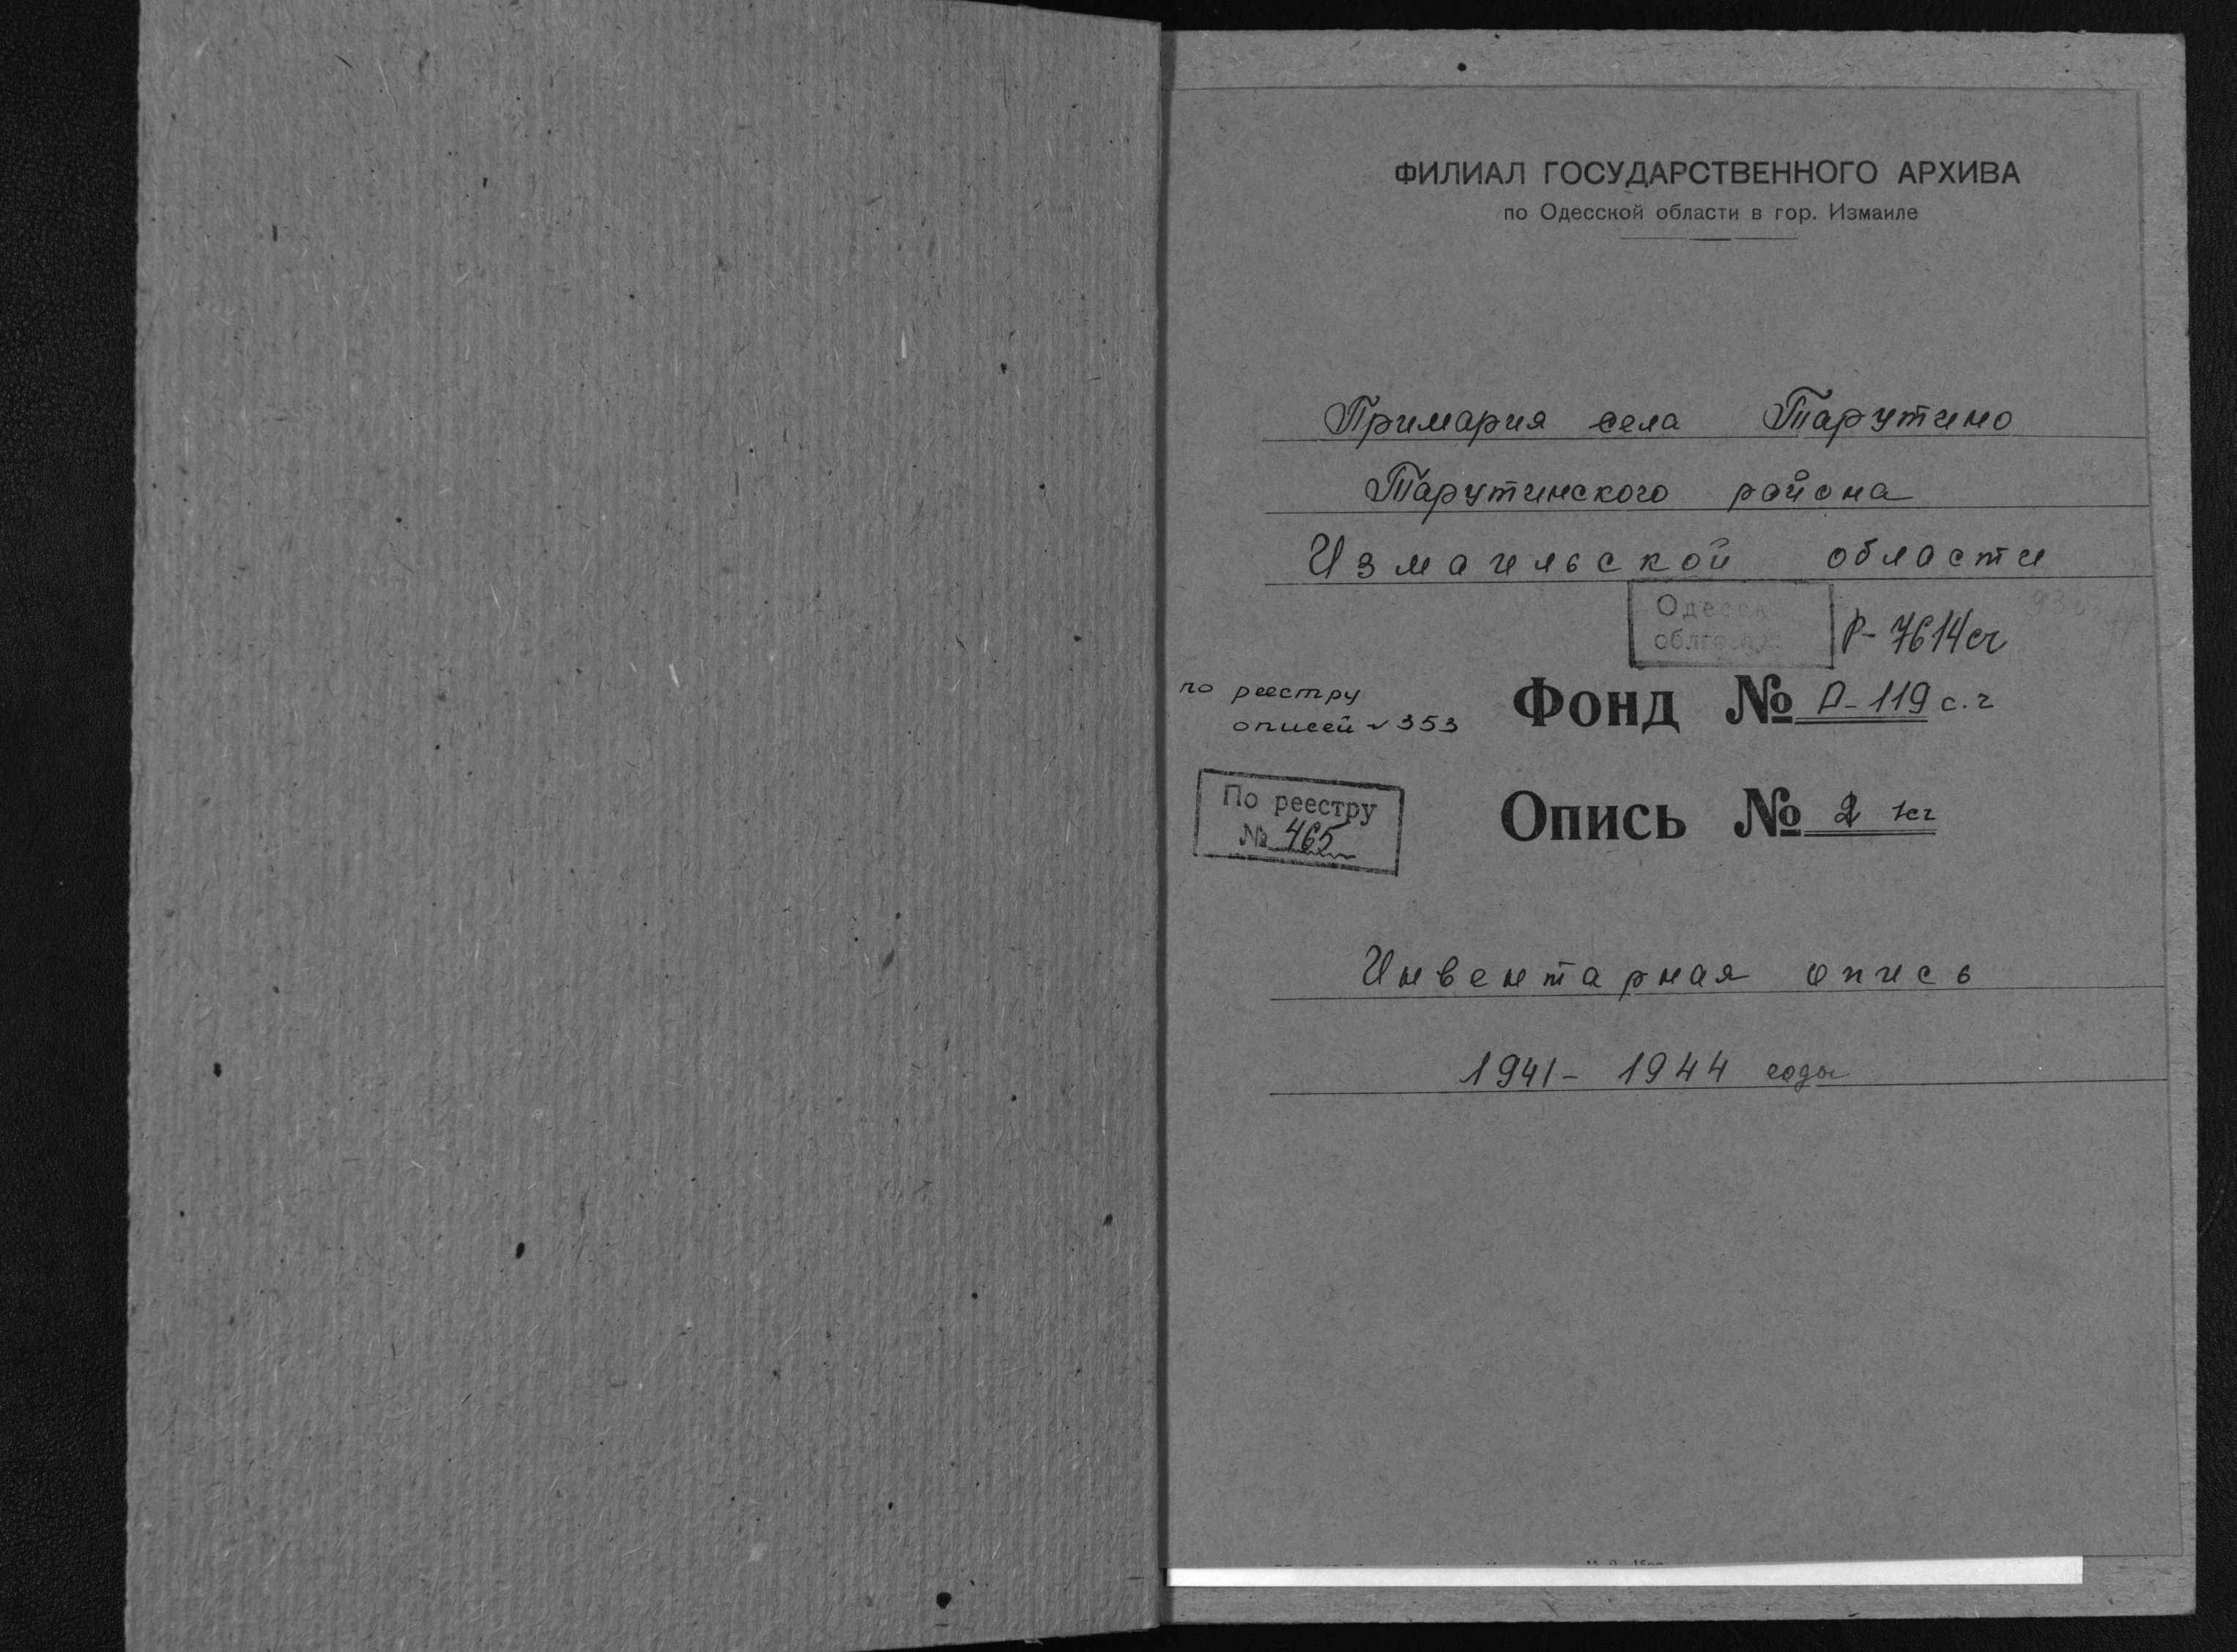 ФИЛИАЛ ГОСУДАРСТВЕННОГО АРХИВА
по Одесской области в гор. Измаиле
Примария села Тарутино
Тарутинского района
Измаильской области
Р-7614сч
по реестру
описей 353
Фонд № Р-119 с.ч
По реестру
№ 465
Опись № 2
Инвентарная опись
1941-1944 годы